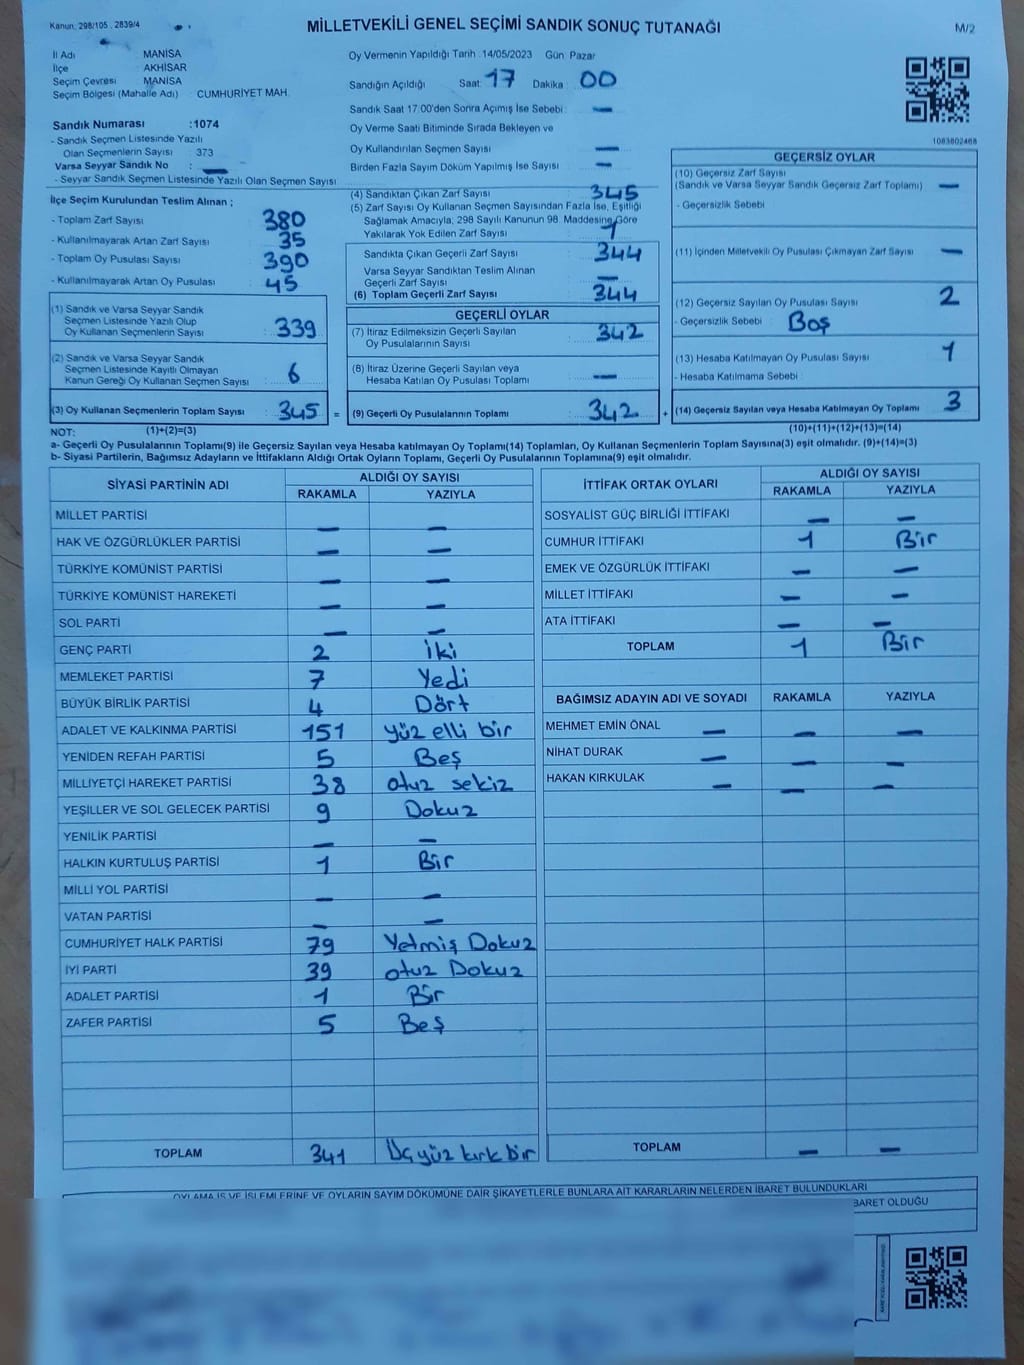 Kanun. 298/105 , 2839/4
MİLLETVEKİLİ GENEL SEÇİMİ SANDIK SONUÇ TUTANAĞI
M/2
İl Adı MANİSA
İlçe AKHİSAR
Seçim Çevresi MANİSA
Seçim Bölgesi (Mahalle Adı) : CUMHURİYET MAH.
Sandık Numarası :1074
- Sandık Seçmen Listesinde Yazılı
Olan Seçmenlerin Sayısı : 373
Varsa Seyyar Sandık No : —
- Seyyar Sandık Seçmen Listesinde Yazılı Olan Seçmen Sayısı
Oy Vermenin Yapıldığı Tarih : 14/05/2023 Gün: Pazar
Sandığın Açıldığı Saat: 17 Dakika : 00
Sandık Saat 17:00'den Sonra Açımış İse Sebebi : —
Oy Verme Saati Bitiminde Sırada Bekleyen ve
Oy Kullandırılan Seçmen Sayısı : —
Birden Fazla Sayım Döküm Yapılmış İse Sayısı : —
1083802468
İlçe Seçim Kurulundan Teslim Alınan ;
- Toplam Zarf Sayısı : 380
- Kullanılmayarak Artan Zarf Sayısı : 35
- Toplam Oy Pusulası Sayısı : 390
- Kullanılmayarak Artan Oy Pusulası : 45
(1) Sandık ve Varsa Seyyar Sandık
Seçmen Listesinde Yazılı Olup
Oy Kullanan Seçmenlerin Sayısı : 339
(2) Sandık ve Varsa Seyyar Sandık
Seçmen Listesinde Kayıtlı Olmayan
Kanun Gereği Oy Kullanan Seçmen Sayısı : 6
(3) Oy Kullanan Seçmenlerin Toplam Sayısı : 345 =
(4) Sandıktan Çıkan Zarf Sayısı : 345
(5) Zarf Sayısı Oy Kullanan Seçmen Sayısından Fazla İse, Eşitliği
Sağlamak Amacıyla, 298 Sayılı Kanunun 98. Maddesine Göre
Yakılarak Yok Edilen Zarf Sayısı : 1
Sandıkta Çıkan Geçerli Zarf Sayısı : 344
Varsa Seyyar Sandıktan Teslim Alınan
Geçerli Zarf Sayısı : —
(6) Toplam Geçerli Zarf Sayısı : 344
GEÇERLİ OYLAR
(7) İtiraz Edilmeksizin Geçerli Sayılan
Oy Pusulalarının Sayısı : 342
(8) İtiraz Üzerine Geçerli Sayılan veya
Hesaba Katılan Oy Pusulası Toplamı : —
(9) Geçerli Oy Pusulalarının Toplamı : 342 +
GEÇERSİZ OYLAR
(10) Geçersiz Zarf Sayısı
(Sandık ve Varsa Seyyar Sandık Geçersiz Zarf Toplamı) : —
- Geçersizlik Sebebi :
(11) İçinden Milletvekili Oy Pusulası Çıkmayan Zarf Sayısı : —
(12) Geçersiz Sayılan Oy Pusulası Sayısı : 2
- Geçersizlik Sebebi : Boş
(13) Hesaba Katılmayan Oy Pusulası Sayısı : 1
- Hesaba Katılmama Sebebi :
(14) Geçersiz Sayılan veya Hesaba Katılmayan Oy Toplamı : 3
NOT: (1)+(2)=(3) (10)+(11)+(12)+(13)=(14)
a- Geçerli Oy Pusulalarının Toplamı(9) ile Geçersiz Sayılan veya Hesaba katılmayan Oy Toplamı(14) Toplamları, Oy Kullanan Seçmenlerin Toplam Sayısına(3) eşit olmalıdır. (9)+(14)=(3)
b- Siyasi Partilerin, Bağımsız Adayların ve İttifakların Aldığı Ortak Oyların Toplamı, Geçerli Oy Pusulalarının Toplamına(9) eşit olmalıdır.
SİYASİ PARTİNİN ADI ALDIĞI OY SAYISI
RAKAMLA YAZIYLA
MİLLET PARTİSİ — —
HAK VE ÖZGÜRLÜKLER PARTİSİ — —
TÜRKİYE KOMÜNİST PARTİSİ — —
TÜRKİYE KOMÜNİST HAREKETİ — —
SOL PARTİ — —
GENÇ PARTİ 2 İki
MEMLEKET PARTİSİ 7 Yedi
BÜYÜK BİRLİK PARTİSİ 4 Dört
ADALET VE KALKINMA PARTİSİ 151 yüz elli bir
YENİDEN REFAH PARTİSİ 5 Beş
MİLLİYETÇİ HAREKET PARTİSİ 38 otuz sekiz
YEŞİLLER VE SOL GELECEK PARTİSİ 9 Dokuz
YENİLİK PARTİSİ — —
HALKIN KURTULUŞ PARTİSİ 1 Bir
MİLLİ YOL PARTİSİ — —
VATAN PARTİSİ — —
CUMHURİYET HALK PARTİSİ 79 Yetmiş Dokuz
İYİ PARTİ 39 otuz Dokuz
ADALET PARTİSİ 1 Bir
ZAFER PARTİSİ 5 Beş
TOPLAM 341 Üçyüz kırk bir
İTTİFAK ORTAK OYLARI ALDIĞI OY SAYISI
RAKAMLA YAZIYLA
SOSYALİST GÜÇ BİRLİĞİ İTTİFAKI — —
CUMHUR İTTİFAKI 1 Bir
EMEK VE ÖZGÜRLÜK İTTİFAKI — —
MİLLET İTTİFAKI — —
ATA İTTİFAKI — —
TOPLAM 1 Bir
BAĞIMSIZ ADAYIN ADI VE SOYADI RAKAMLA YAZIYLA
MEHMET EMİN ÖNAL — — —
NİHAT DURAK — — —
HAKAN KIRKULAK — — —
TOPLAM — —
OYLAMA İŞ VE İŞLEMLERİNE VE OYLARIN SAYIM DÖKÜMÜNE DAİR ŞİKAYETLERLE BUNLARA AİT KARARLARIN NELERDEN İBARET BULUNDUKLARI
BARET OLDUĞU